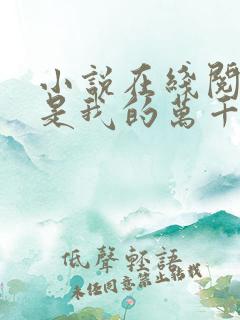 小說在綫閱
是我的萬千
低聲輕語
未經同意禁止轉載